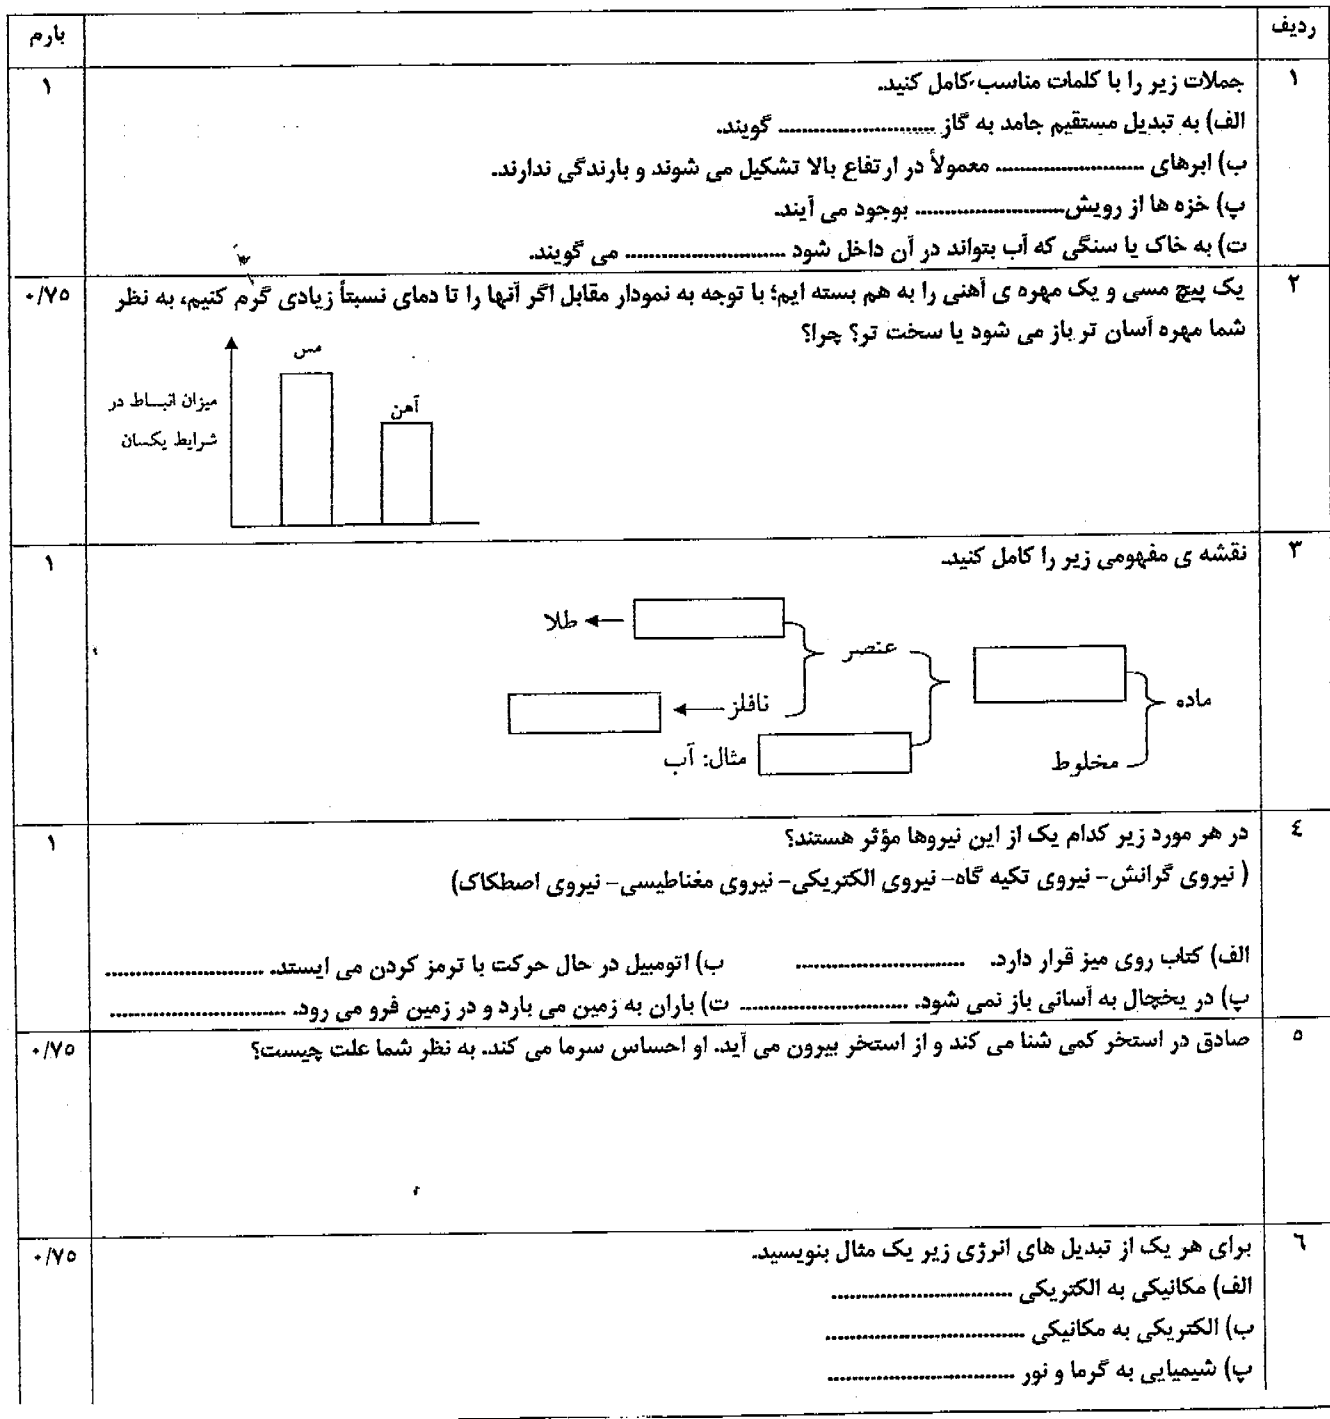 ردیف
بارم
۱
جملات زیر را با کلمات مناسب کامل کنید.
۱
الف) به تبدیل مستقیم جامد به گاز ........................... گویند.
ب) ابرهای ......................... معمولاً در ارتفاع بالا تشکیل می شوند و بارندگی ندارند.
پ) خزه ها از رویش.......................... بوجود می آیند.
ت) به خاک یا سنگی که آب بتواند در آن داخل شود ........................... می گویند.
۲
یک پیچ مسی و یک مهره ی آهنی را به هم بسته ایم؛ با توجه به نمودار مقابل اگر آنها را تا دمای نسبتاً زیادی گرم کنیم، به نظر
۰/۷۵
شما مهره آسان تر باز می شود یا سخت تر؟ چرا؟
مس
آهن
میزان انبساط در
شرایط یکسان
۳
نقشه ی مفهومی زیر را کامل کنید.
۱
طلا
عنصر
ماده
نافلز
مثال: آب
مخلوط
٤
در هر مورد زیر کدام یک از این نیروها مؤثر هستند؟
۱
( نیروی گرانش- نیروی تکیه گاه- نیروی الکتریکی- نیروی مغناطیسی- نیروی اصطکاک)
الف) کتاب روی میز قرار دارد. ............................. ب) اتومبیل در حال حرکت با ترمز کردن می ایستد. ...........................
پ) در یخچال به آسانی باز نمی شود. ............................. ت) باران به زمین می بارد و در زمین فرو می رود. ..............................
۵
صادق در استخر کمی شنا می کند و از استخر بیرون می آید. او احساس سرما می کند. به نظر شما علت چیست؟
۰/۷۵
٦
برای هر یک از تبدیل های انرژی زیر یک مثال بنویسید.
۰/۷۵
الف) مکانیکی به الکتریکی ...............................
ب) الکتریکی به مکانیکی ..................................
پ) شیمیایی به گرما و نور ................................